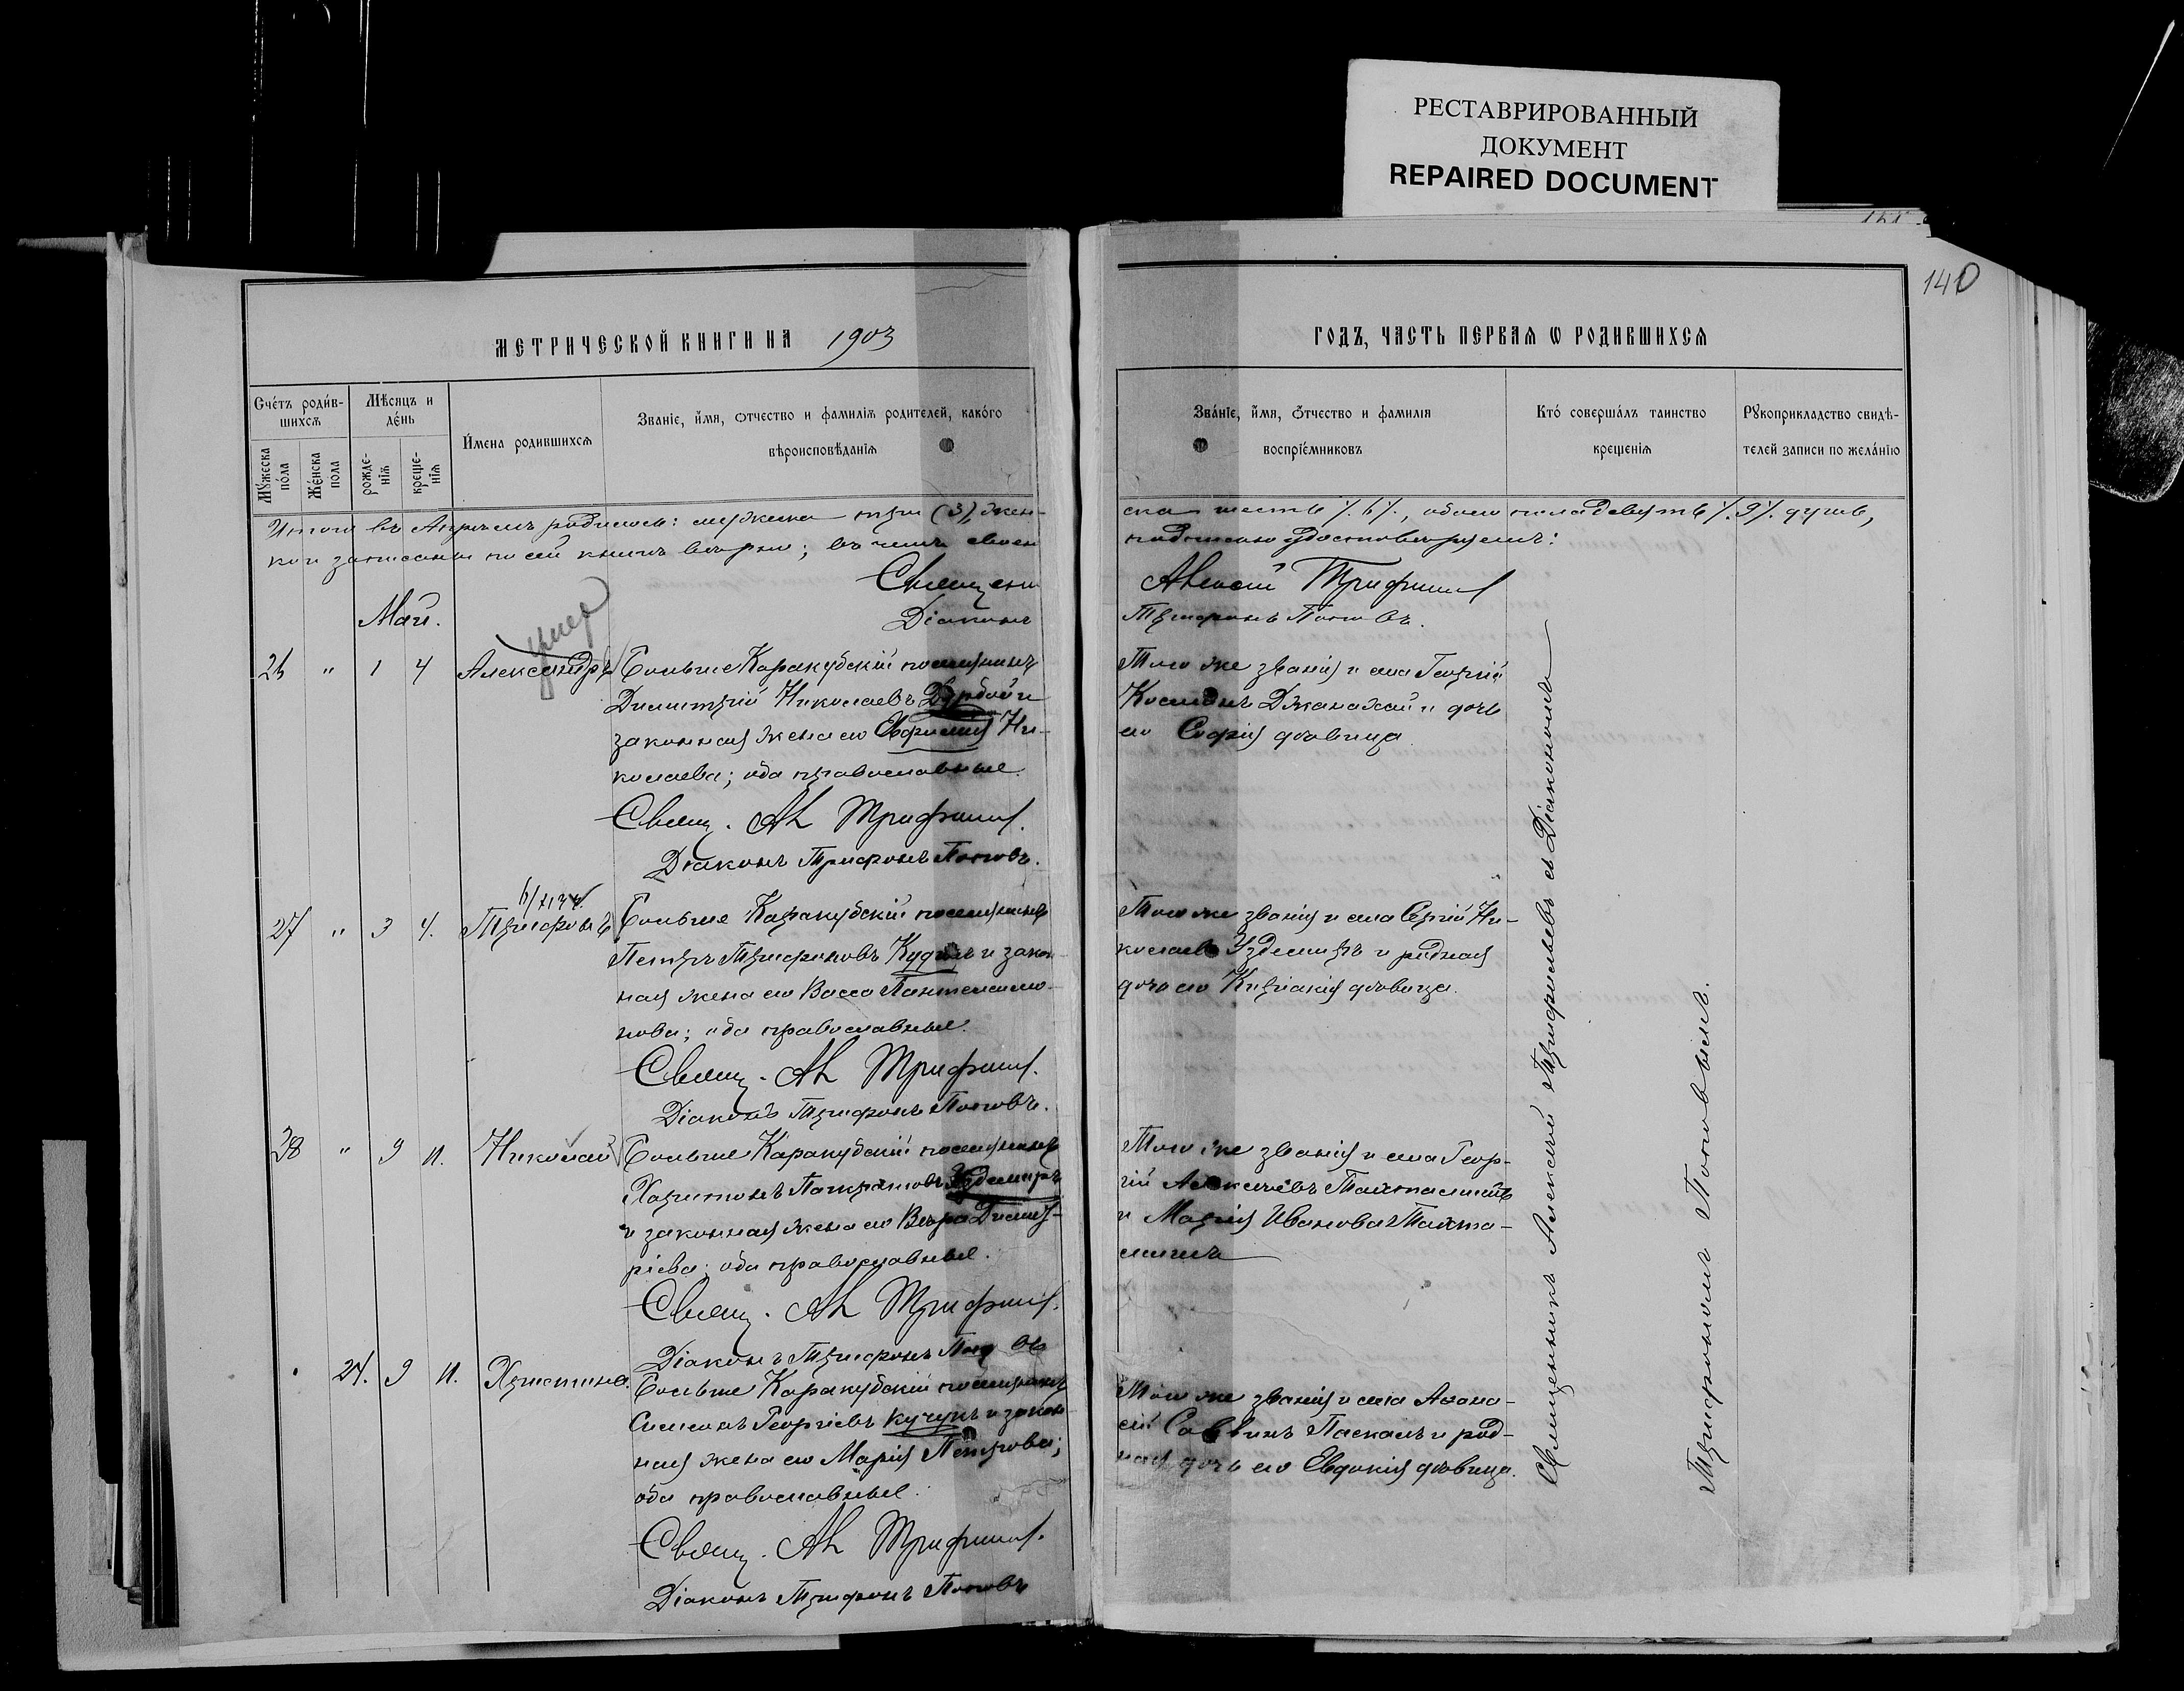 РЕСТАВРИРОВАННЫЙ
ДОКУМЕНТ
REPAIRED DOCUMENT
140
МЕТРИЧЕСКОЙ КНИГИ НА 1903
ГОДЪ, ЧАСТЬ ПЕРВАЯ Ѡ РОДИВШИХСЯ
Счетъ родив-
шихся
Мужеска
пола
Женска
пола
Мѣсяцъ и
день
рожде-
нія
креще-
нія
Имена родившихся
Званіе, имя, отчество и фамилія родителей, какого
вѣроисповѣданія
Званіе, имя, отчество и фамилія
воспріемниковъ
Кто совершалъ таинство
крещенія
Рукоприкладство свидѣ-
телей записи по желанію
Итого въ Апрѣлѣ родилось: мужеска три (3), жен-
ска шесть /.6/., обоего пола девять /.9/. душъ,
кои записаны по сей книгѣ вѣрно; въ чемъ своею
подписью удостовѣряемъ:
Священн
Алексій Трифильев
Діаконъ
Трифонъ Поповъ.
Май.
умер
26 " 1 4 Александръ
Больше Каракубскій поселянинъ
Димитрій Николаевъ и
законная жена его Евфимія Ни-
колаева; оба православные.
Свящ. Ал Трифильев.
Діаконъ Трифонъ Поповъ.
Того же званія и села Георгій
Космдинъ Джанахай и дочь
его Софія дѣвица
27 " 3 4. Трифонъ
Больше Каракубскій поселянинъ
Петръ Трифоновъ и закон-
ная жена его Васса Пантелеимо-
нова; оба православные.
Свящ. Ал Трифильев.
Діаконъ Трифонъ Поповъ.
Того же званія и села Сергій Ни-
колаевъ Уздемиръ и родная
дочь его Киріакія дѣвица.
28 " 9 11. Николай
Больше Каракубскій поселянинъ
Харитонъ Панкратовъ Уздемиръ
и законная жена его Вѣра Димит-
ріева; оба православные.
Свящ. Ал Трифильев.
Діаконъ Трифонъ Поповъ
Того же званія и села Геор-
гій Алексѣевъ Тахтамышъ
и Марія Иванова Тахта-
мышъ
" 24. 9 11. Христина.
Больше Каракубскій поселянинъ
Симеонъ Георгіевъ Кучукъ и закон-
ная жена его Марія Петрова;
оба православные.
Свящ. Ал Трифильев.
Діаконъ Трифонъ Поповъ
Того же званія и села Аѳана-
сій Саввинъ Паскалъ и род-
ная дочь его Евдокія дѣвица.
Священникъ Алексій Трифильевъ съ Діакономъ
Трифономъ Поповымъ.